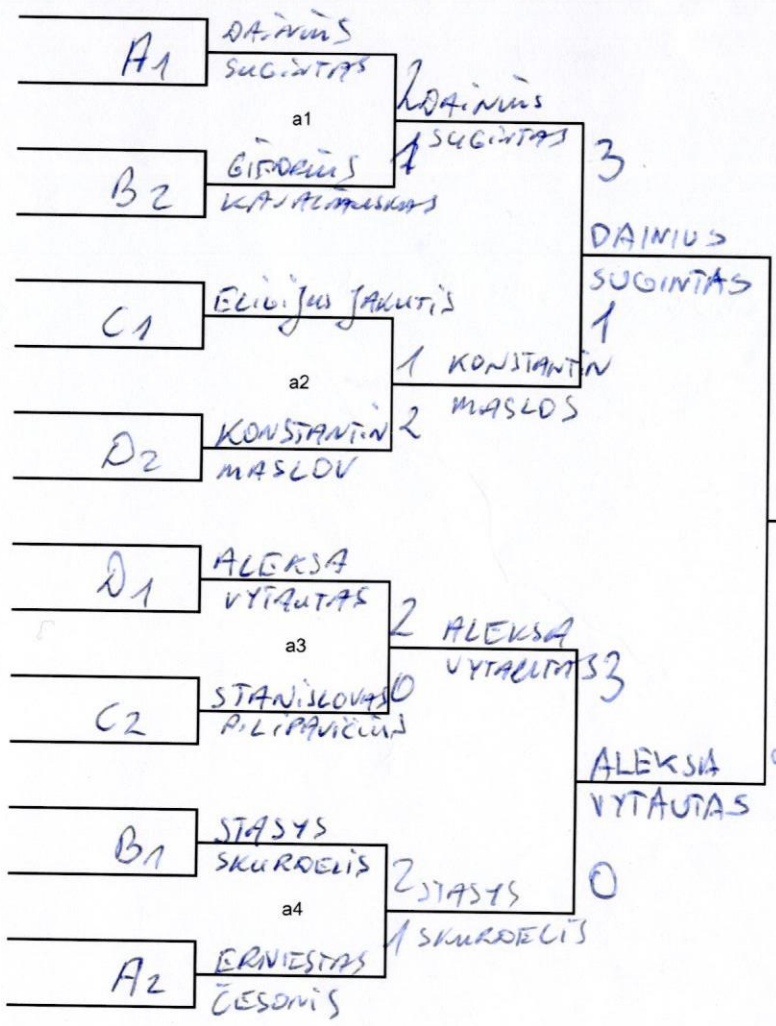 A1
DAINIUS
SUGINTAS
2
a1
1
B2
GIEDRIUS
KAVALIAUSKAS
DAINIUS
SUGINTAS
3
C1
ELIGIJUS JAKUTIS
a2
1
2
D2
KONSTANTIN
MASLOV
KONSTANTIN
MASLOS
1
DAINIUS
SUGINTAS
D1
ALEKSA
VYTAUTAS
2
a3
0
C2
STANISLOVAS
PILIPAVIČIUS
ALEKSA
VYTAUTAS
3
B1
STASYS
SKURDELIS
2
a4
1
A2
ERNIESTAS
ČESONIS
STASYS
SKURDELIS
0
ALEKSA
VYTAUTAS